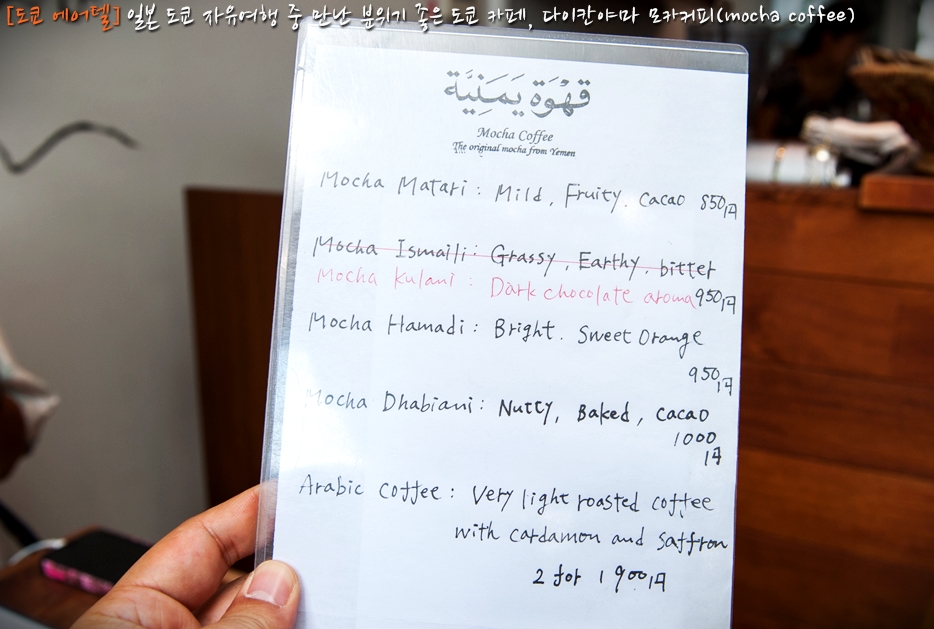 [도쿄 에어텔] 일본 도쿄 자유여행 중 만난 분위기 좋은 도쿄 카페, 다이칸야마 모카커피(mocha coffee)
قهوة يَمَنِيَّة
Mocha Coffee
The original mocha from Yemen
Mocha Matari : Mild, Fruity, Cacao 850円
Mocha Ismaili : Grassy, Earthy, bitter
Mocha Kulani : Dark chocolate aroma 950円
Mocha Hamadi : Bright. Sweet Orange
950円
Mocha Dhabiani : Nutty, Baked, Cacao
1000
円
Arabic Coffee : Very light roasted coffee
with cardamon and saffron
2 for 1900円